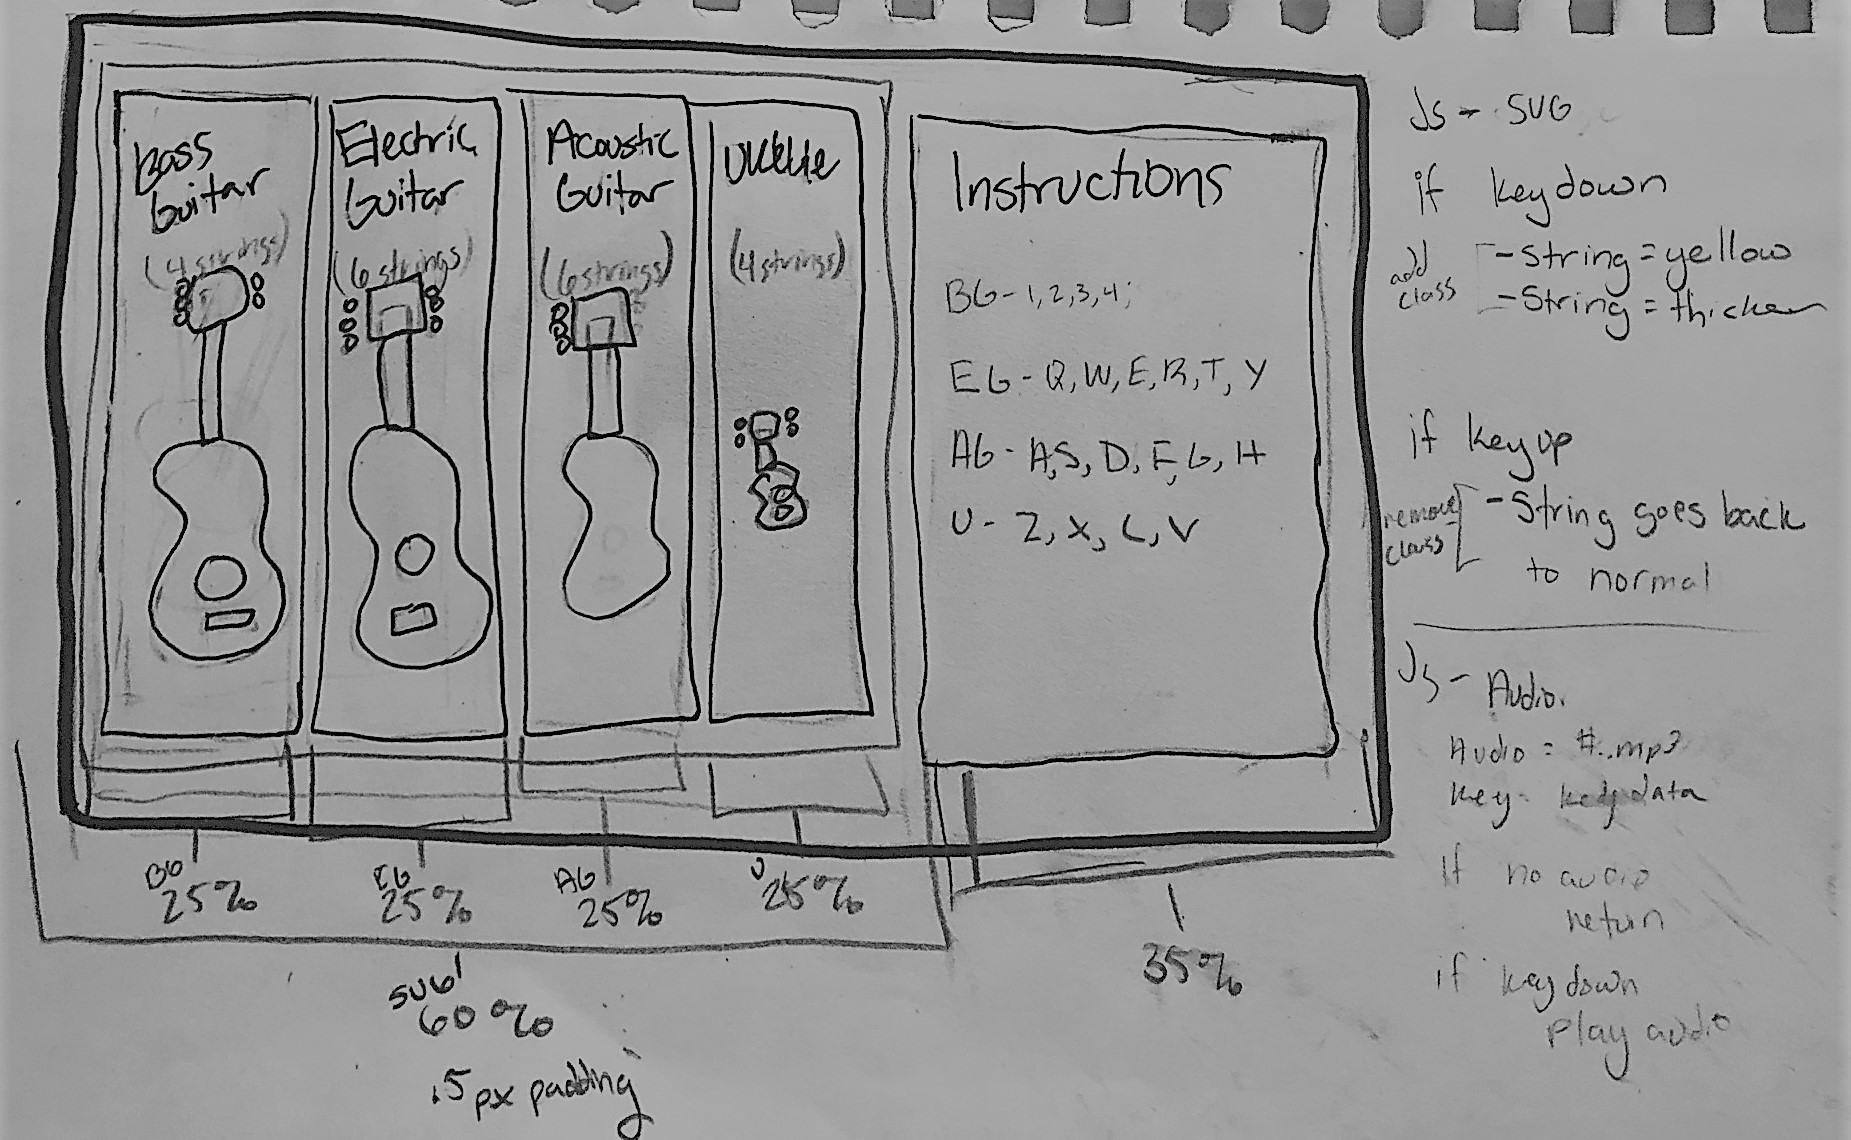 Bass
Guitar
(4 strings)
Electric
Guitar
(6 strings)
Acoustic
Guitar
(6 strings)
(4 strings)
Instructions
BG - 1, 2, 3, 4;
EG - Q, W, E, R, T, Y
AG - A, S, D, F, G, H
U - Z, X, C, V
BG
25%
EG
25%
AG
25%
U
25%
SVG
60%
.5px padding
35%
JS - SVG
if keydown
add
class
- String = yellow
- String = thicker
if keyup
remove
class
- String goes back
to normal
JS - Audio.
Audio = #..mp3
key - key data
If no audio
return
if keydown
play audio